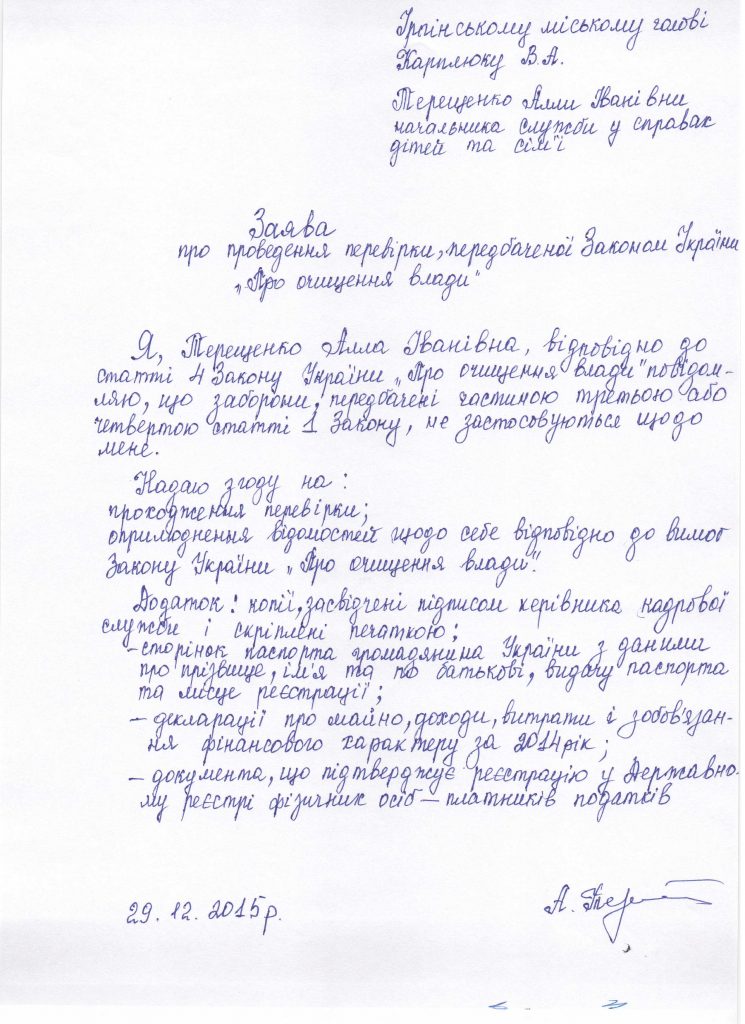 Ірпінському міському голові
Карплюку В.А.
Терещенко Алли Іванівни
начальника служби у справах
дітей та сім'ї
Заява
про проведення перевірки, передбаченої Законом України
„Про очищення влади"
Я, Терещенко Алла Іванівна, відповідно до
статті 4 Закону України „Про очищення влади" повідом-
ляю, що заборони, передбачені частиною третьою або
четвертою статті 1 Закону, не застосовуються щодо
мене.
Надаю згоду на:
проходження перевірки;
оприлюднення відомостей щодо себе відповідно до вимог
Закону України „Про очищення влади".
Додаток: копії, засвідчені підписом керівника кадрової
служби і скріплені печаткою;
- сторінок паспорта громадянина України з даними
про прізвище, ім'я та по батькові, видачу паспорта
та місце реєстрації;
– декларації про майно, доходи, витрати і зобов'язан-
ня фінансового характеру за 2014 рік;
– документа, що підтверджує реєстрацію у Державно-
му реєстрі фізичних осіб – платників податків
29.12.2015р.
А. Тер